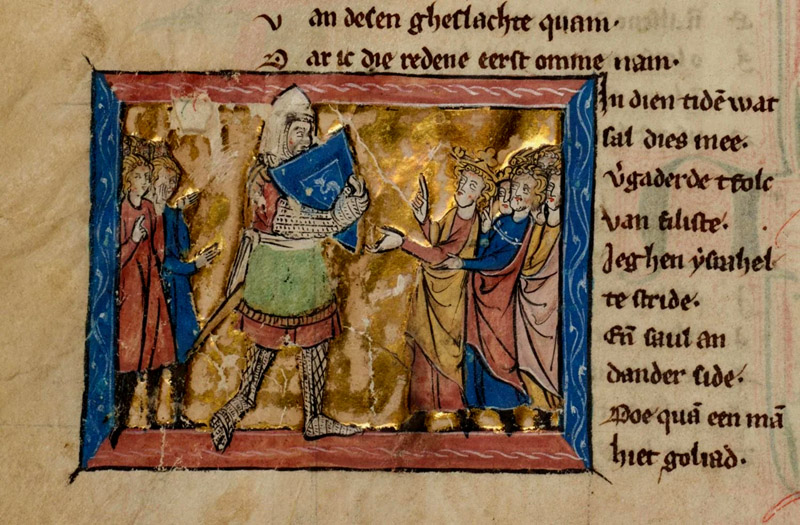 V an desen gheslachte quam·
D ar ic die redene eerst omme nam·
In dien tidē wat
sal dies mee·
v͛gaderde tfolc
van filiste·
Jeghen ysrahel
te stride·
Eñ saul an
dander side·
Doe quā een mā
hiet goliad·